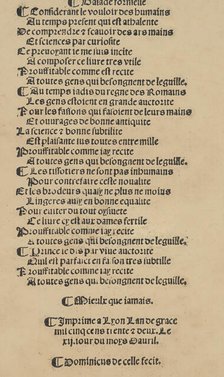 ¶ Balade formelle
¶ Considerant le vouloir des humains
Au temps present qui est athalente
De comprendre & scauoir des ars mains
Et sciences par curiosite
Ce preuoyant ie me suis incite
A composer ce liure tres vtile
Prouffitable comme est recite
A toutes gens qui besongnent de leguille.
¶ Au temps iadis du regne des Romains
Les gens estoient en grande auctorite
Pour les fastons qui faisoient de leurs mains
Et ouurages de bonne antiquite
La science & bonne subtilite
Est plaisante sus toutes entre mille
Prouffitable comme iay recite
A toutes gens qui besongnent de leguille.
¶ Les tissotiers ne sont pas inhumains
Pour contrefaire ceste noualite
Et les brodeurs quay ne plus ne moins
Lingeres aussy en bonne equalite
Pour euiter du tout oysiuete
Ce liure cy est aux dames fertile
Prouffitable comme iay recite
A toutes gens qui besongnent de leguille.
¶ Prince ie dis par viue auctorite
Quil est parfaict en facon tres subtille
Prouffitable comme iay recite
A toutes gens qui besongnent de leguille.
¶ Mieulx que iamais.
¶ Imprime a Lyon Lan de grace
mil cinq cens trente & deux. Le
xij. iour du moys Dauril.
¶ Dominicus de celle fecit.